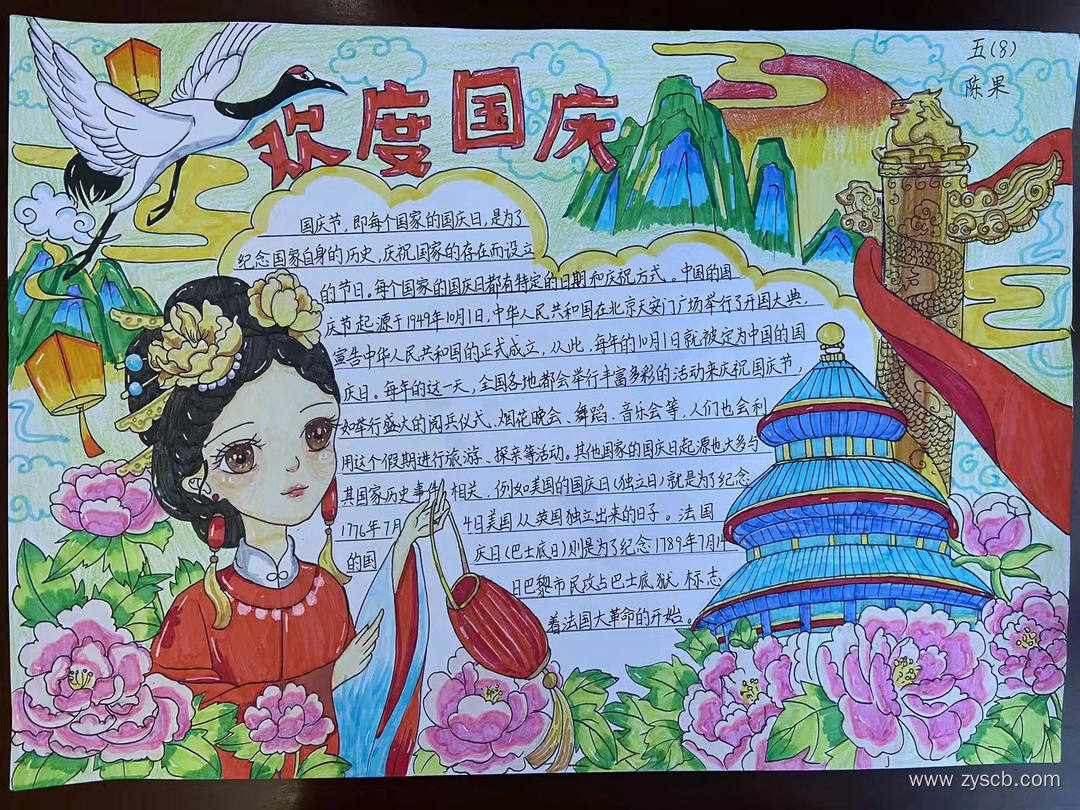 五(8)
陈果
欢度国庆
国庆节，即每个国家的国庆日，是为了
纪念国家自身的历史，庆祝国家的存在而设立
的节日。每个国家的国庆日都有特定的日期和庆祝方式。中国的国
庆节起源于1949年10月1日，中华人民共和国在北京天安门广场举行了开国大典，
宣告中华人民共和国的正式成立，从此，每年的10月1日就被定为中国的国
庆日。每年的这一天，全国各地都会举行丰富多彩的活动来庆祝国庆节，
如举行盛大的阅兵仪式、烟花晚会、舞蹈、音乐会等，人们也会利
用这个假期进行旅游、探亲等活动。其他国家的国庆日起源也大多与
其国家历史事件相关，例如美国的国庆日（独立日）就是为了纪念
1776年7月4日美国从英国独立出来的日子。法国
的国庆日（巴士底日）则是为了纪念1789年7月14
日巴黎市民攻占巴士底狱，标志
着法国大革命的开始。
www.zyscb.com